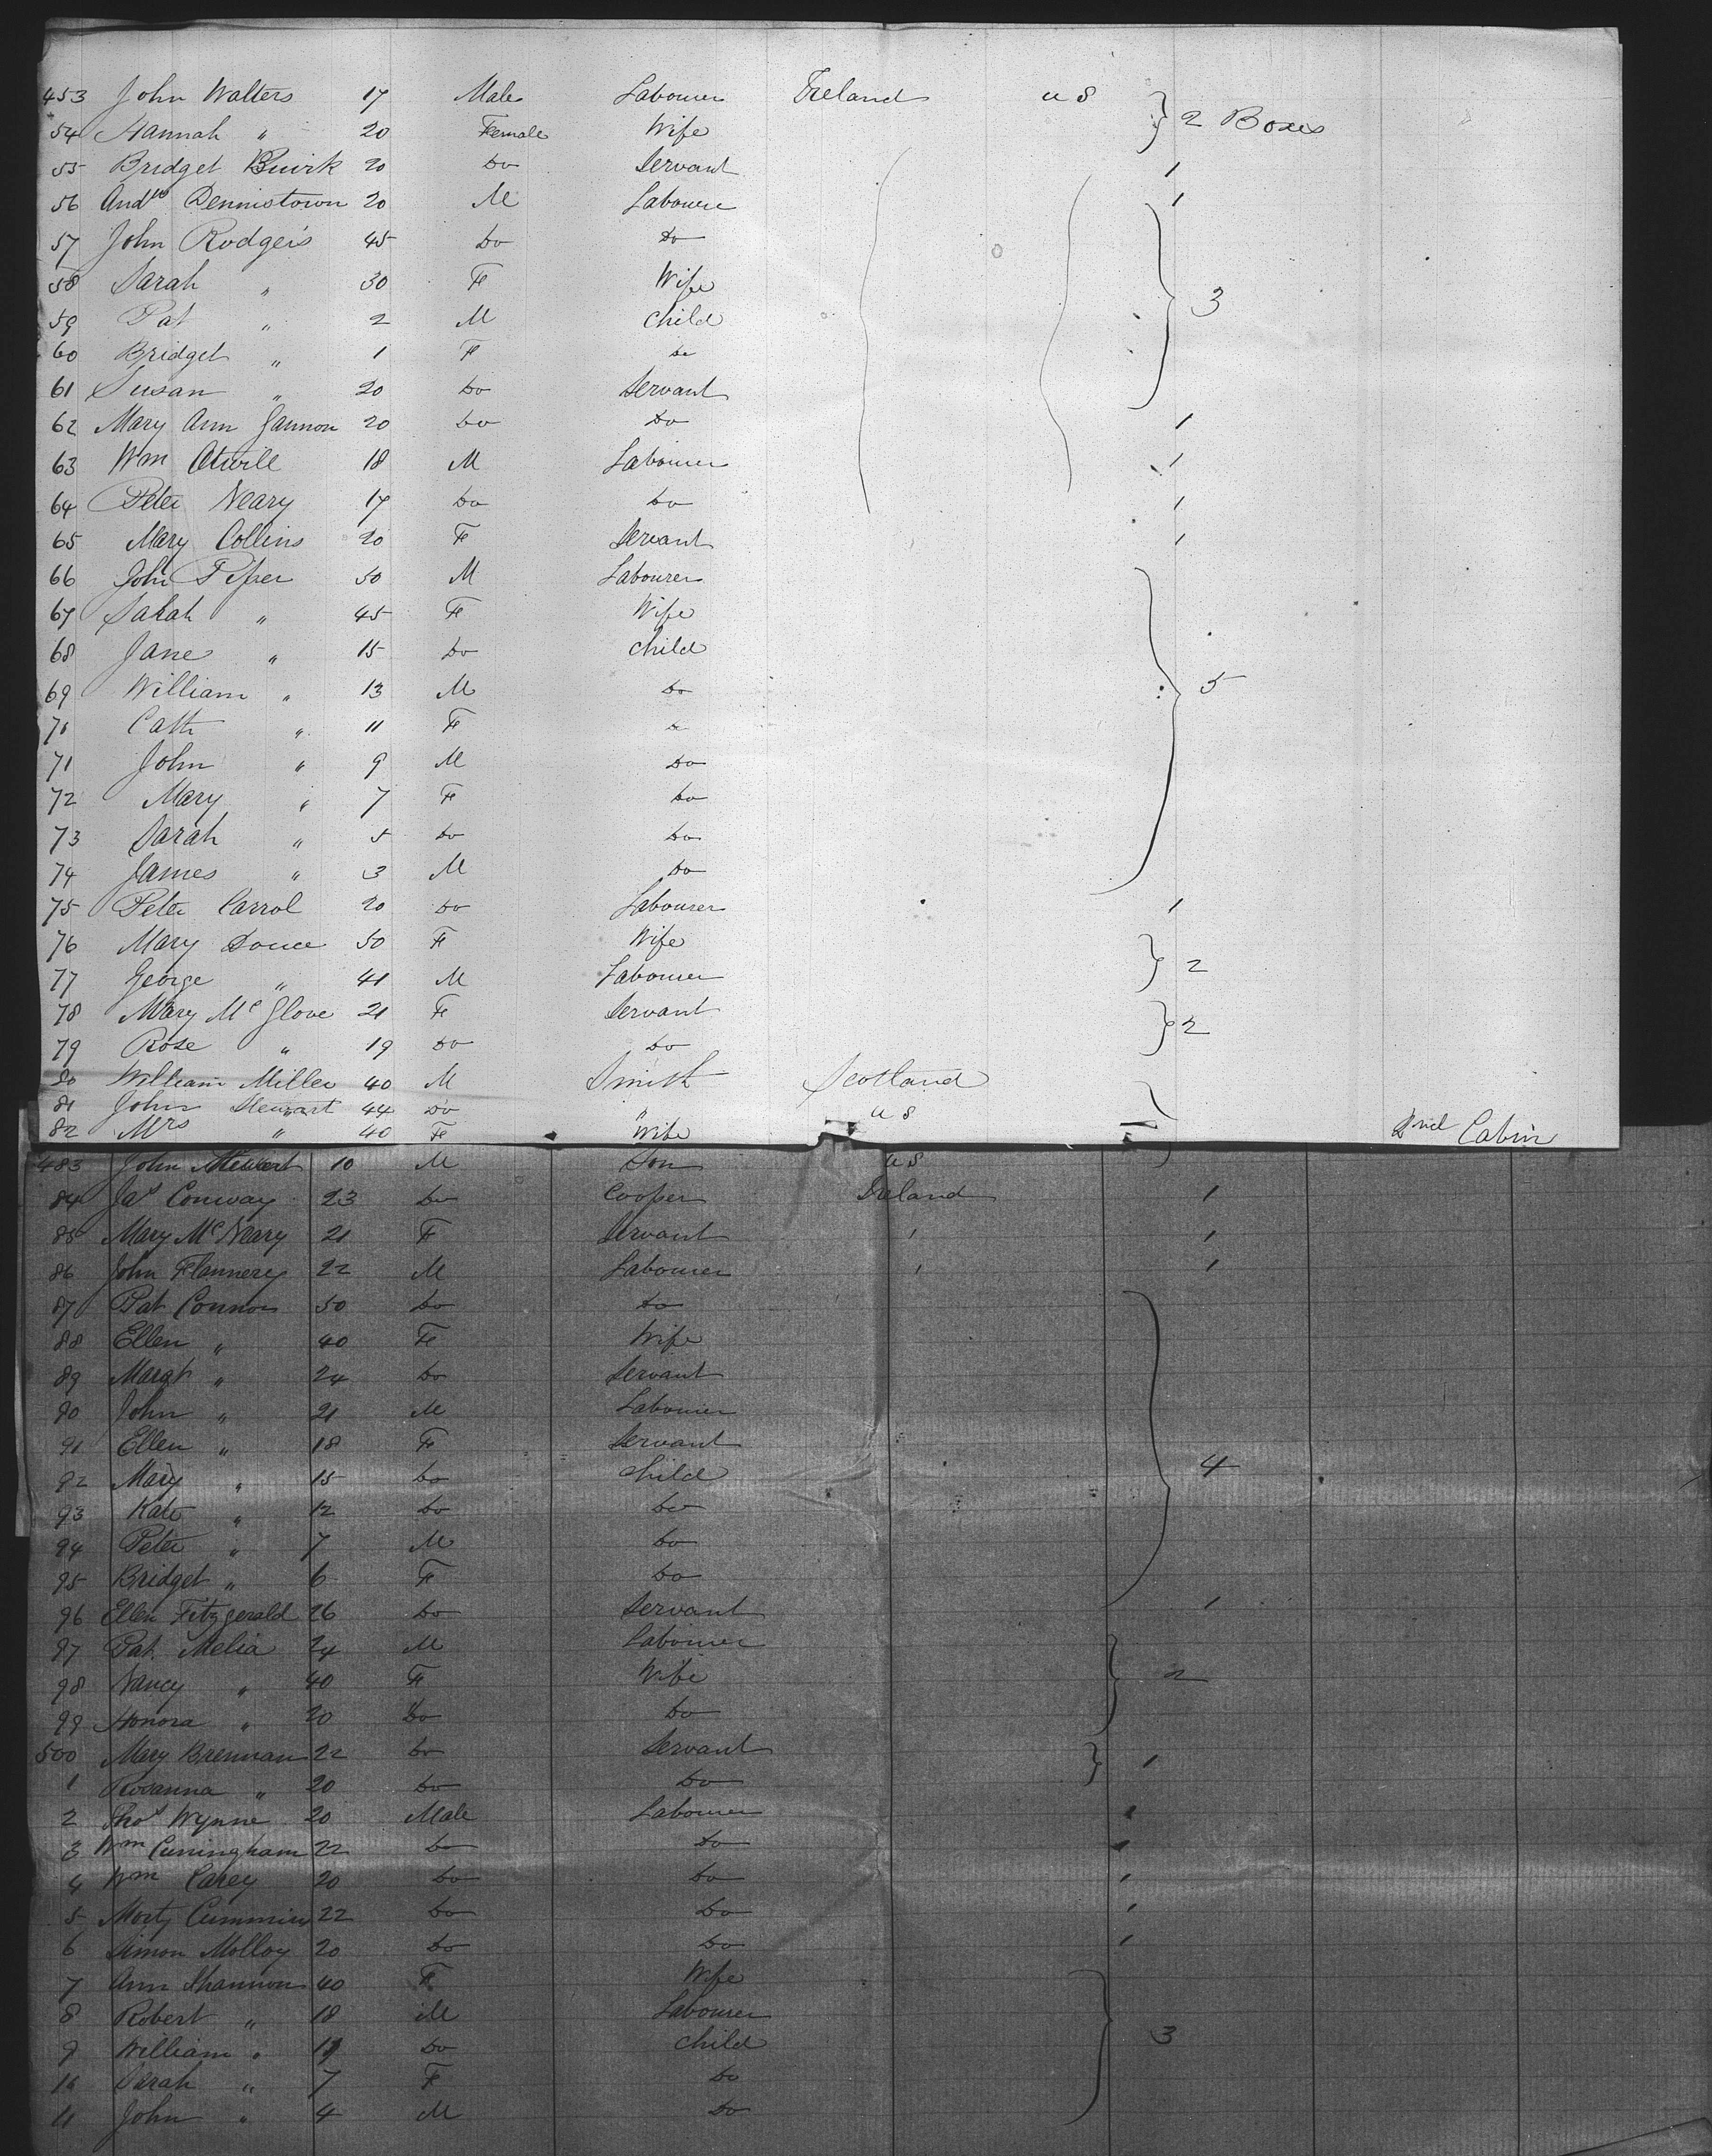 453 John Walters 17 Male Labourer Ireland U S } 2 Boxes
54 Hannah " 20 Female Wife
55 Bridget Quirk 20 Do Servant 1
56 Andw Dennistown 20 M Labourer 1
57 John Rodgers 45 Do Do
58 Sarah " 30 F Wife
59 Pat " 2 M Child } 3
60 Bridget " 1 F Do
61 Susan " 20 Do Servant
62 Mary Ann Gannon 20 Do Do 1
63 Wm Atwill 18 M Labourer 1
64 Peter Neary 17 Do Do 1
65 Mary Collins 20 F Servant 1
66 John Piper 50 M Labourer
67 Sarah " 45 F Wife
68 Jane " 15 Do Child
69 William " 13 M Do } 5
70 Cath " 11 F Do
71 John " 9 M Do
72 Mary " 7 F Do
73 Sarah " 5 Do Do
74 James " 3 M Do
75 Peter Carrol 20 Do Labourer 1
76 Mary Douce 50 F Wife
77 George " 41 M Labourer } 2
78 Mary McGlove 21 F Servant
79 Rose " 19 Do Do } 2
80 William Miller 40 M Smith Scotland
81 John Stewart 44 Do " U S
82 Mrs " 40 F Wife 2nd Cabin
483 John Stewart 10 M Son U S
84 Jas Conway 23 Do Cooper Ireland 1
85 Mary McNeary 21 F Servant " 1
86 John Flannery 22 M Labourer " 1
87 Pat Connor 50 Do Do
88 Ellen " 40 F Wife
89 Margt " 24 Do Servant
90 John " 21 M Labourer
91 Ellen " 18 F Servant
92 Mary " 15 Do Child } 4
93 Kate " 12 Do Do
94 Peter " 7 M Do
95 Bridget " 6 F Do
96 Ellen Fitzgerald 26 Do Servant 1
97 Pat Melia 24 M Labourer
98 Nancy " 40 F Wife } 2
99 Honora " 20 Do Do
500 Mary Brennan 22 Do Servant } 1
1 Rosanna " 20 Do Do
2 Thos Wynne 20 Male Labourer 1
3 Wm Cuningham 22 Do Do 1
4 Wm Carey 20 Do Do 1
5 Morty Cummins 22 Do Do 1
6 Simon Molloy 20 Do Do 1
7 Ann Shannon 40 F Wife
8 Robert " 18 M Labourer
9 William " Do Child } 3
10 Sarah " 7 F Do
11 John " 4 M Do